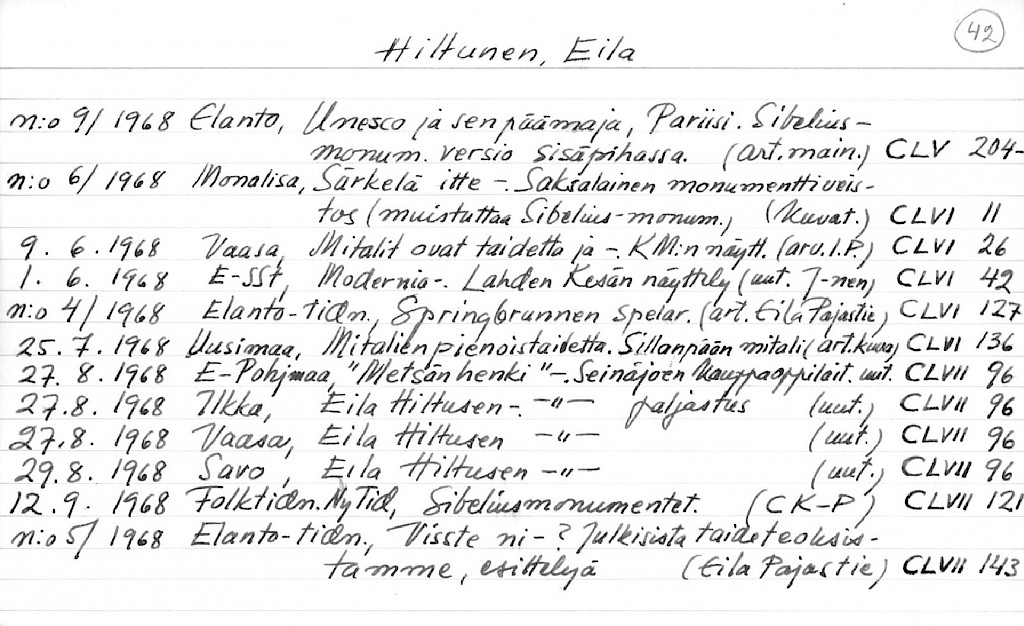 42
Hiltunen, Eila
n:o 9/1968 Elanto, Unesco ja sen päämaja, Pariisi. Sibelius-
monum. versio sisäpihassa. (art.main.) CLV 204-
n:o 6/1968 Monalisa, Särkelä itte -. Saksalainen monumenttiveis-
tos (muistuttaa Sibelius-monum.) (kuvat.) CLVI 11
9. 6. 1968 Vaasa, Mitalit ovat taidetta ja -. KM:n näytt. (arv.I.P.) CLVI 26
1. 6. 1968 E-SSt, Modernia-. Lahden Kesän näyttely (uut. J-nen) CLVI 42
n:o 4/1968 Elanto-tidn., Springbrunnen spelar. (art. Eila Pajastie) CLVI 127
25. 7. 1968 Uusimaa, Mitalien pienoistaidetta. Sillanpään mitali (art.kuva) CLVI 136
27. 8. 1968 E-Pohjmaa, "Metsän henki" -. Seinäjoen Kauppaoppilait. uut. CLVII 96
27.8. 1968 Ilkka, Eila Hiltusen -. -"- paljastus (uut.) CLVII 96
27.8. 1968 Vaasa, Eila Hiltusen -"- (uut.) CLVII 96
29.8. 1968 Savo, Eila Hiltusen -"- (uut.) CLVII 96
12. 9. 1968 Folktidn. Ny Tid, Sibeliusmonumentet. (CK-P) CLVII 121
n:o 5/1968 Elanto-tidn., Visste ni-? Julkisista taideteoksis-
tamme, esittelyä (Eila Pajastie) CLVII 143